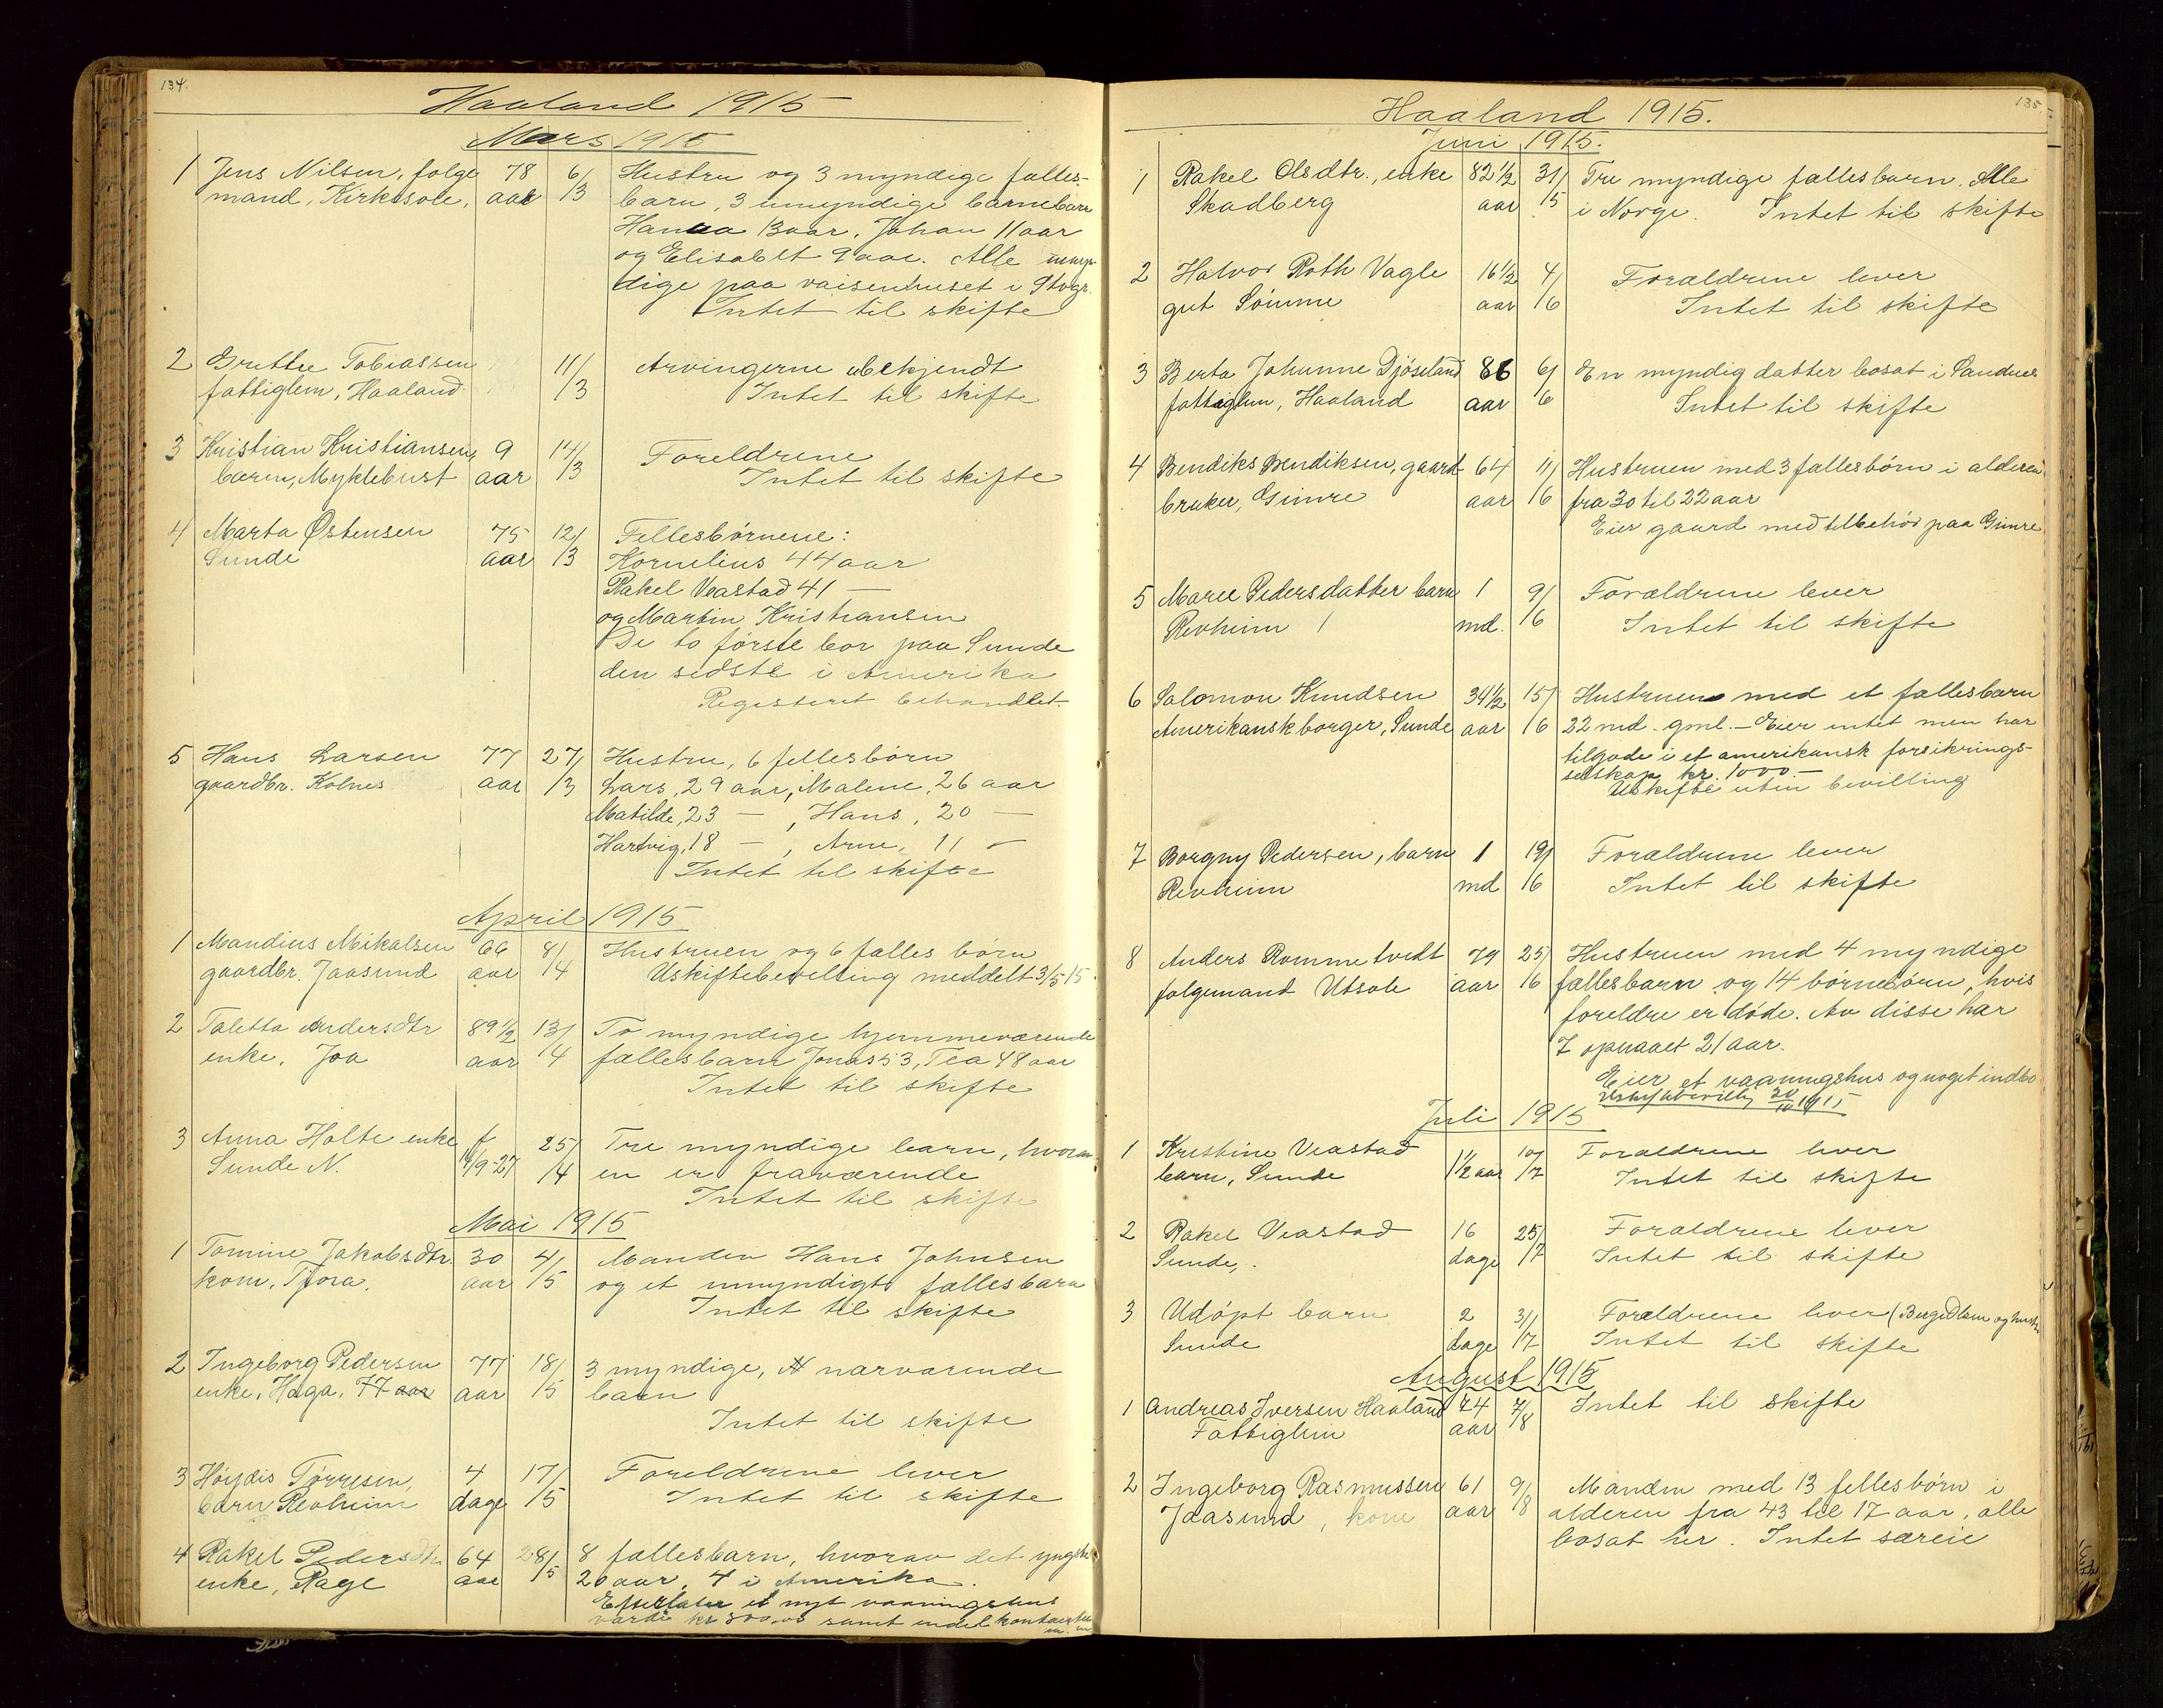 134.
Haaland 1915
Mars 1915
1 Jens Nilsen, folge 78 6/ Hustru og 3 myndige fælles-
mand, Kirkesole, aar /3 barn, 3 umyndige barnebarn
Hanna 13 aar, Johan 11 aar
og Elisabet 9 aar. Alle umyn-
dige paa vaisenhuset i Stvgr.
Intet til skifte
2 Tobiassen 11/ Arvingerne ubekjendt
fattiglem, Haaland /3 Intet til skifte
3 Kristian Kristiansen, 9 14/ Foreldrene
barn, Myklebust aar /3 Intet til skifte
4 Marta Østensen 75 12/ Fellesbørnene:
Sunde aar /3 Kornelius 44 aar
Rakel Veastad 41 —
og Martin Kristiansen
De to første bor paa Sunde
den sidste i Amerika
Registeret behandlet.
5 Hans Larsen 77 27/ Hustru, 6 fellesbørn
gaardbr. Kolnes aar /3 Lars, 29 aar, Malene, 26 aar
Matilde, 23 — , Hans, 20 —
Hartvig, 18 — , Arne, 11 —
Intet til skifte
April 1915
1 Mandius Mikalsen 66 8/ Hustruen og 6 fælles børn
gaardbr. Jaasund aar /4 Uskiftebevilling meddelt 3/5 15.
2 Taletta Andersdtr 89 1/2 13/ To myndige hjemmeværende
enke, Joa aar /4 fællesbarn Jonas 53, Tea 48 aar
Intet til skifte
3 Anna Holte enke f 25/ Tre myndige barn, hvorav
Sunde N. /9-27 /4 en er fraværende
Intet til skifte
Mai 1915
1 Tomine Jakobsdtr. 30 4/ Manden Hans Johnsen
kone, Tjora, aar /5 og et umyndigt fællesbarn
Intet til skifte
2 Ingeborg Pedersen 77 18/ 3 myndige, nærværende
enke, Haga, 77 aar aar /5 barn
Intet til skifte
3 Høydis Tørresen, 4 17/ Foreldrene lever
barn Revheim dage /5 Intet til skifte
4 Rakel Pedersdtr 64 28/ 8 fællesbarn, hvorav det yngste
enke, Rage aar /5 20 aar, 4 i Amerika.
Efterlater et nyt vaaningshus
værdi kr 300,00 samt endel
135
Haaland 1915.
Juni 1915.
1 Rakel Olsdtr., enke 82 1/2 31/ Tre myndige fællesbarn. Alle
Skadberg aar /5 i Norge. Intet til skifte
2 Halvor Roth Vagle 16 1/2 4/ Forældrene lever
gut Sømme aar /6 Intet til skifte
3 Berta Johanne Djøseland 86 6/ En myndig datter bosat i Sandnes
fattiglem, Haaland aar /6 Intet til skifte
4 Bendiks Bendiksen, gaard 64 11/ Hustruen med 3 fællesbørn i alderen
bruker, Gimre aar /6 fra 30 til 22 aar
Eier gaard med tilbehør paa Gimre
5 Marie Pedersdatter barn 1 9/ Forældrene lever
Revheim md. /6 Intet til skifte
6 Salomon Knudsen 34 1/2 15/ Hustruen med et fællesbarn
Amerikansk borger, Sunde aar /6 22 md. gml. — Eier intet men har
tilgode i et amerikansk forsikrings-
selskap kr. 1000.—
Uskifte uten bevilling
7 Borgny Pedersen, barn 1 19/ Forældrene lever
Revheim md /6 Intet til skifte
8 Anders Rommetvedt 79 25/ Hustruen med 4 myndige
folgemand Utsole aar /6 fællesbarn og 14 børnebørn, hvis
foreldre er døde. Av disse har
7 opnaaet 21 aar.
Eier et vaaningshus og noget indbo
1915
Juli 1915
1 Kristine Veastad 1 1/2 aar 10/ Forældrene lever
barn, Sunde /7 Intet til skifte
2 Rakel Veastad 16 25/ Forældrene lever
Sunde, dage /7 Intet til skifte
3 Udøpt barn 2 31/ Forældrene lever
Sunde dage /7 Intet til skifte
August 1915
1 Andreas Iversen Haaland 74 7/8 Intet til skifte
Fattiglem aar
2 Ingeborg Rasmussen 61 9/8 Manden med 13 fellesbørn i
Jaasund, kone aar alderen fra 43 til 17 aar, alle
bosat her. Intet særeie